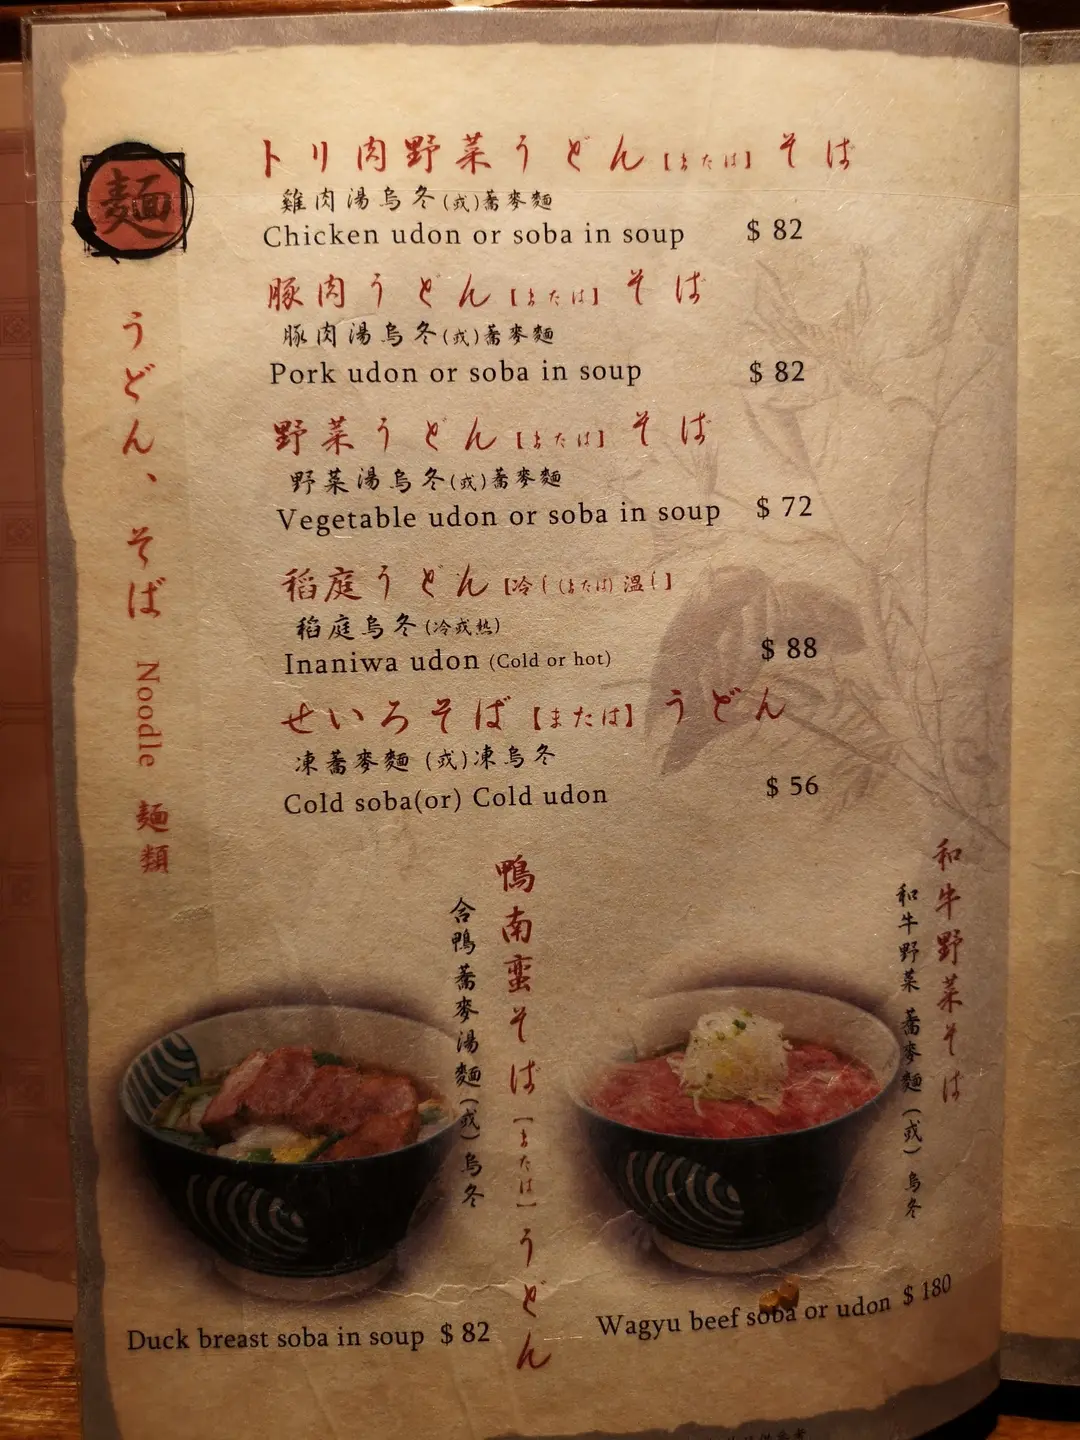 麺
うどん、そば Noodle 麺類
トリ肉野菜うどん【または】そば
雞肉湯烏冬(或)蕎麥麵
Chicken udon or soba in soup $ 82
豚肉うどん【または】そば
豚肉湯烏冬(或)蕎麥麵
Pork udon or soba in soup $ 82
野菜うどん【または】そば
野菜湯烏冬(或)蕎麥麵
Vegetable udon or soba in soup $ 72
稻庭うどん【冷し(または)温し】
稻庭烏冬(冷或熱)
Inaniwa udon (Cold or hot) $ 88
せいろそば【または】うどん
凍蕎麥麵 (或)凍烏冬
Cold soba(or) Cold udon $ 56
鴨南蛮そば【または】うどん
合鴨蕎麥湯麵(或)烏冬
Duck breast soba in soup $ 82
和牛野菜そば
和牛野菜 蕎麥麵(或)烏冬
Wagyu beef soba or udon $ 180